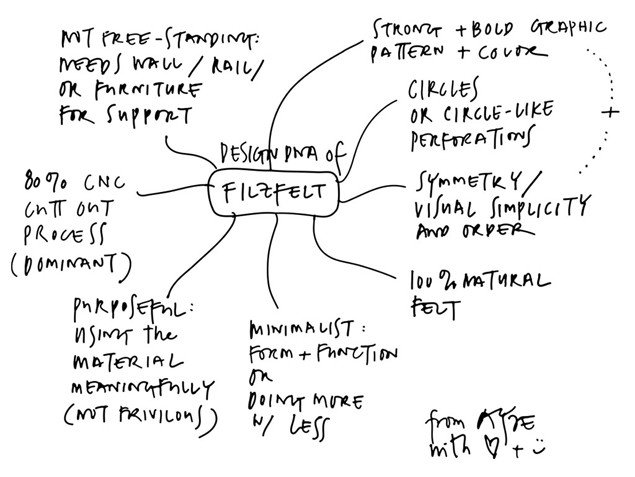 NOT FREE-STANDING:
NEEDS WALL / RAIL /
OR FURNITURE
FOR SUPPORT
STRONG + BOLD GRAPHIC
PATTERN + COLOR
CIRCLES
OR CIRCLE-LIKE
PERFORATIONS
+
SYMMETRY /
VISUAL SIMPLICITY
AND ORDER
DESIGN DNA OF
FILZFELT
80% CNC
CUTT OUT
PROCESS
(DOMINANT)
100% NATURAL
FELT
PURPOSEFUL:
USING the
MATERIAL
MEANINGFULLY
(NOT FRIVILOUS)
MINIMALIST:
FORM + FUNCTION
OR
DOING MORE
W/ LESS
from
with ♡ + ü